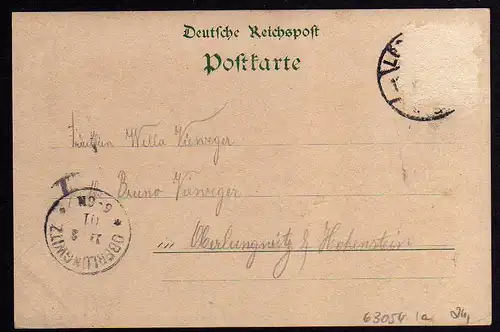 Deutsche Reichspost
Postkarte
Fräulein Willa Vieweger
Bruno Vieweger
Oberlungwitz b/ Hohenstein
* OBERLUNGWITZ *
63054 1a 24,